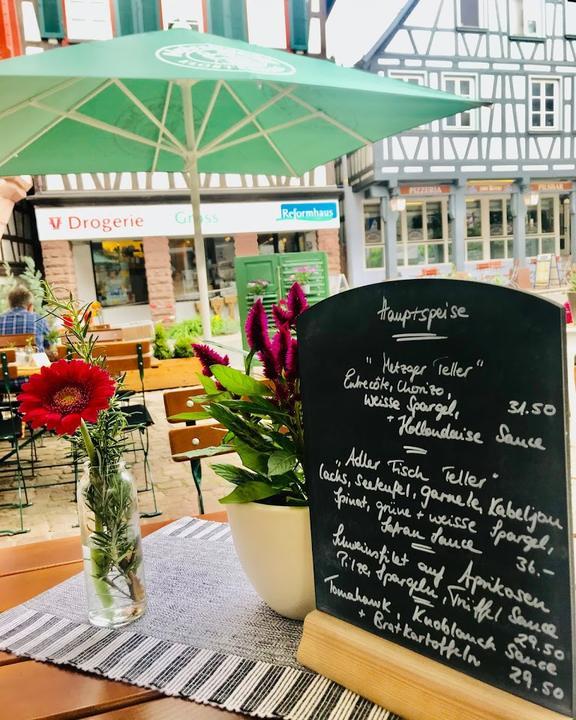 Drogerie Gross Reformhaus
PIZZERIA
PILSBAR
Hauptspeise
"Metzger Teller"
Entrecôte, Chorizo,
weisse Spargel, 31.50
+ Hollandaise Sauce
"Adler Fisch Teller"
Lachs, seeteufel, garnele, Kabeljau
Spinat, grüne + weisse Spargel,
Safran Sauce 36.-
Schweinsfilet auf Aprikosen
Pilze, Spargeln, Trüffel Sauce
29.50
Tomahawk Knoblauch Sauce
+ Bratkartoffeln 29.50